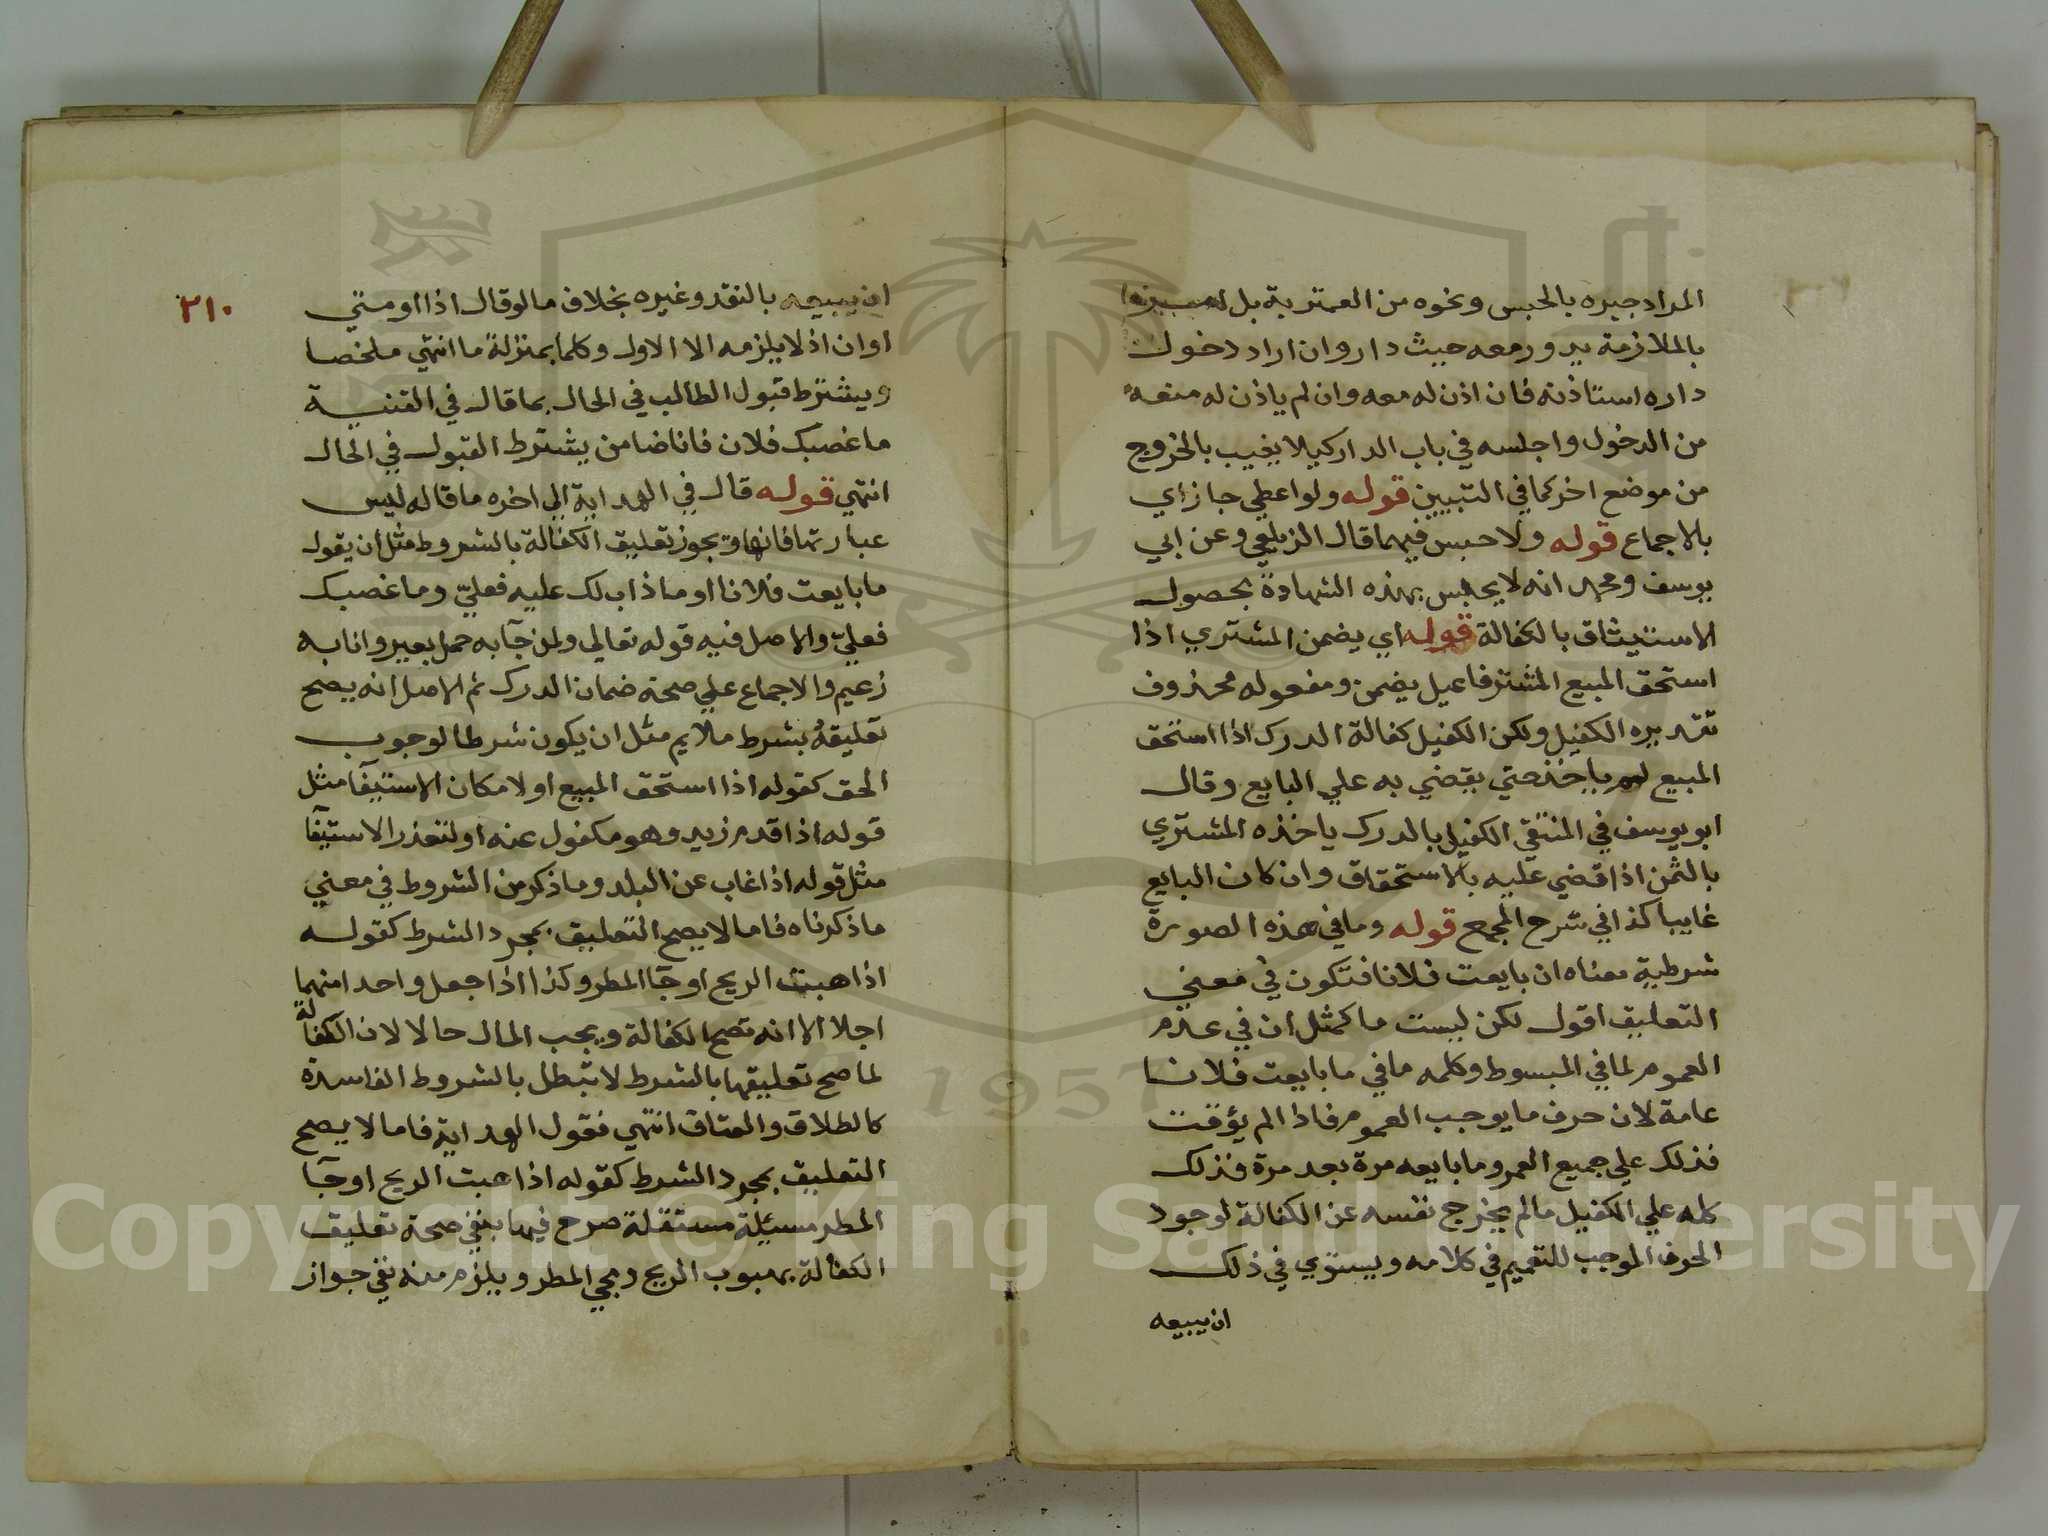 المراد جبره بالحبس ونحوه من العقوبة بل
بالملازمة يدور معه حيث دار وان اراد دخول
داره استاذنه فان اذن له معه وان لم ياذن له منعه
من الدخول واجلسه في باب الدار كيلا يغيب بالخروج
من موضع اخر كما في التبيين قوله ولو اعطي جاز اي
بالاجماع قوله ولا حبس فيهما قال الزيلعي وعن ابي
يوسف ومحمد انه لا يحبس بهذه الشهادة بحصول
الاستيثاق بالكفالة قوله اي يضمن المشتري اذا
استحق المبيع المشتر فاعل يضمن ومفعوله محذوف
تقديره الكفيل ولكن الكفيل كفالة الدرك اذا استحق
المبيع لم ياخذ حتي يقضي به علي البايع وقال
ابو يوسف في المنتقي الكفيل بالدرك ياخذه المشتري
بالثمن اذا قضي عليه بالاستحقاق وان كان البايع
غايبا كذا في شرح المجمع قوله وما في هذه الصورة
شرطية معناه ان بايعت فلانا فتكون في معني
التعليق اقول لكن ليست ما كمثل ان في عدم
العموم لما في المبسوط وكلمه ما في ما بايعت فلانا
عامة لان حرف ما يوجب العموم فاذا لم يؤقت
فذلك علي جميع العمر وما بايعه مرة بعد مرة فذلك
كله علي الكفيل ما لم يخرج نفسه عن الكفالة لوجود
الحرف الموجب للتعميم في كلامه ويستوي في ذلك
ان يبيعه
٢١٠
ان يبيعه بالنقد وغيره بخلاف ما لو قال اذا او متي
او ان اذ لا يلزمه الا الاول وكلما بمنزلة ما انتهي ملخصا
ويشترط قبول الطالب في الحال بما قال في القنية
ما غصبك فلان فانا ضامن يشترط القبول في الحال
انتهي قوله قال في الهداية الي اخره ما قاله ليس
عبارتها فانها ويجوز تعليق الكفالة بالشروط مثل ان يقول
ما بايعت فلانا او ما ذاب لك عليه فعليّ وما غصبك
فعليّ والاصل فيه قوله تعالي ولمن جآ به حمل بعير وانا به
زعيم والاجماع علي صحة ضمان الدرك ثم الاصل انه يصح
تعليقه بشرط ملايم مثل ان يكون شرطا لوجوب
الحق كقوله اذا استحق المبيع او لا مكان الاستيفآ مثل
قوله اذا قدم زيد وهو مكفول عنه او لتعذر الاستيفآ
مثل قوله اذا غاب عن البلد وما ذكر من الشروط في معني
ما ذكرناه فاما لا يصح التعليق بمجرد الشرط كقوله
اذا هبت الريح او جآ المطر وكذا اذا جعل واحد امنهما
اجلا الا انه تصح الكفالة ويجب المال حالا لان الكفالة
لما صح تعليقها بالشرط لا تبطل بالشروط الفاسدة
كالطلاق والعتاق انتهي فقول الهداية فاما لا يصح
التعليق بمجرد الشرط كقوله اذا هبت الريح او جآ
المطر مسئلة مستقلة صرح فيها بنفي صحة تعليق
الكفالة بهبوب الريح ومجي المطر ويلزم منه نفي جواز
Copyright © King Saud University
1957